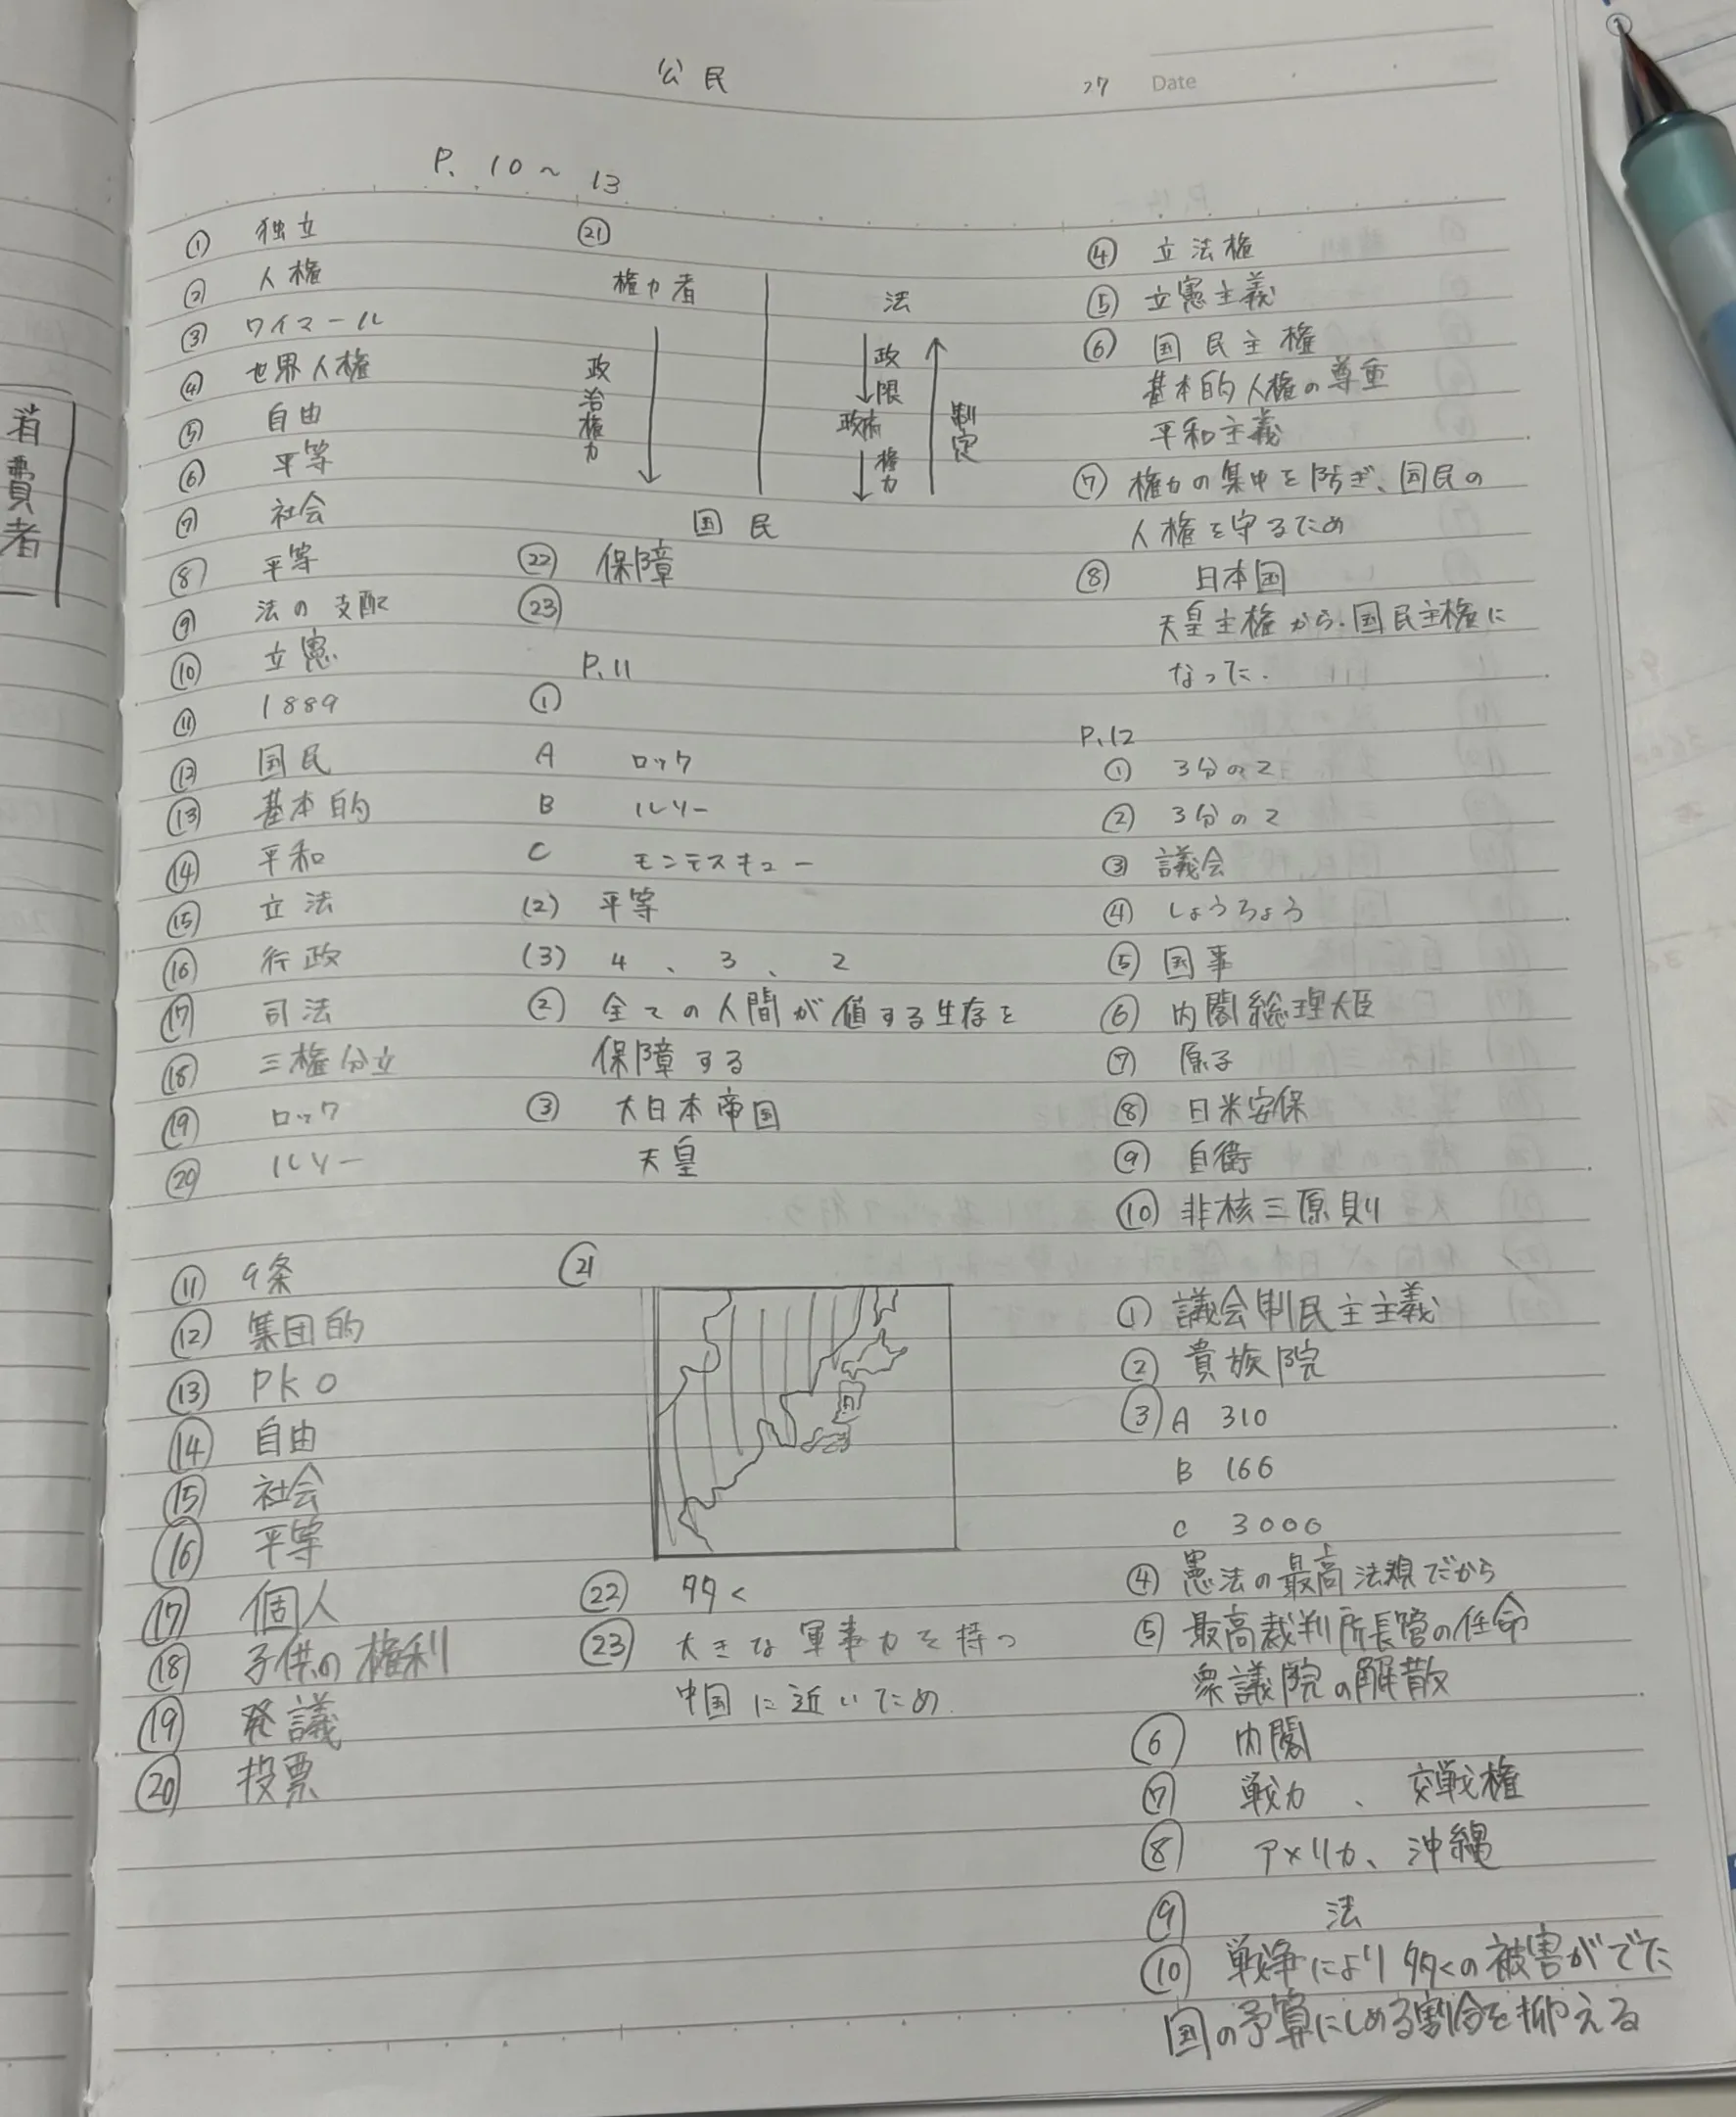 公民
27 Date
P. 10～13
① 独立
② 人権
③ ワイマール
④ 世界人権
⑤ 自由
⑥ 平等
⑦ 社会
⑧ 平等
⑨ 法の支配
⑩ 立憲
⑪ 1889
⑫ 国民
⑬ 基本的
⑭ 平和
⑮ 立法
⑯ 行政
⑰ 司法
⑱ 三権分立
⑲ ロック
⑳ ルソー
㉑
権力者
政治権力
法
政限
政府
権力
制定
国民
㉒ 保障
㉓
P.11
①
A ロック
B ルソー
C モンテスキュー
(2) 平等
(3) 4、3、2
② 全ての人間が値する生存を
保障する
③ 大日本帝国
天皇
④ 立法権
⑤ 立憲主義
⑥ 国民主権
基本的人権の尊重
平和主義
⑦ 権力の集中を防ぎ、国民の
人権を守るため
⑧ 日本国
天皇主権から国民主権に
なった.
P.12
① 3分の2
② 3分の2
③ 議会
④ しょうちょう
⑤ 国事
⑥ 内閣総理大臣
⑦ 原子
⑧ 日米安保
⑨ 自衛
⑩ 非核三原則
⑪ 9条
⑫ 集団的
⑬ PKO
⑭ 自由
⑮ 社会
⑯ 平等
⑰ 個人
⑱ 子供の権利
⑲ 発議
⑳ 投票
㉑
㉒ 多く
㉓ 大きな軍事力を持つ
中国に近いため
① 議会制民主主義
② 貴族院
③ A 310
B 166
C 3000
④ 憲法の最高法規だから
⑤ 最高裁判所長官の任命
衆議院の解散
⑥ 内閣
⑦ 戦力、交戦権
⑧ アメリカ、沖縄
⑨ 法
⑩ 戦争により多くの被害がでた
国の予算にしめる割合を抑える
消費者
①